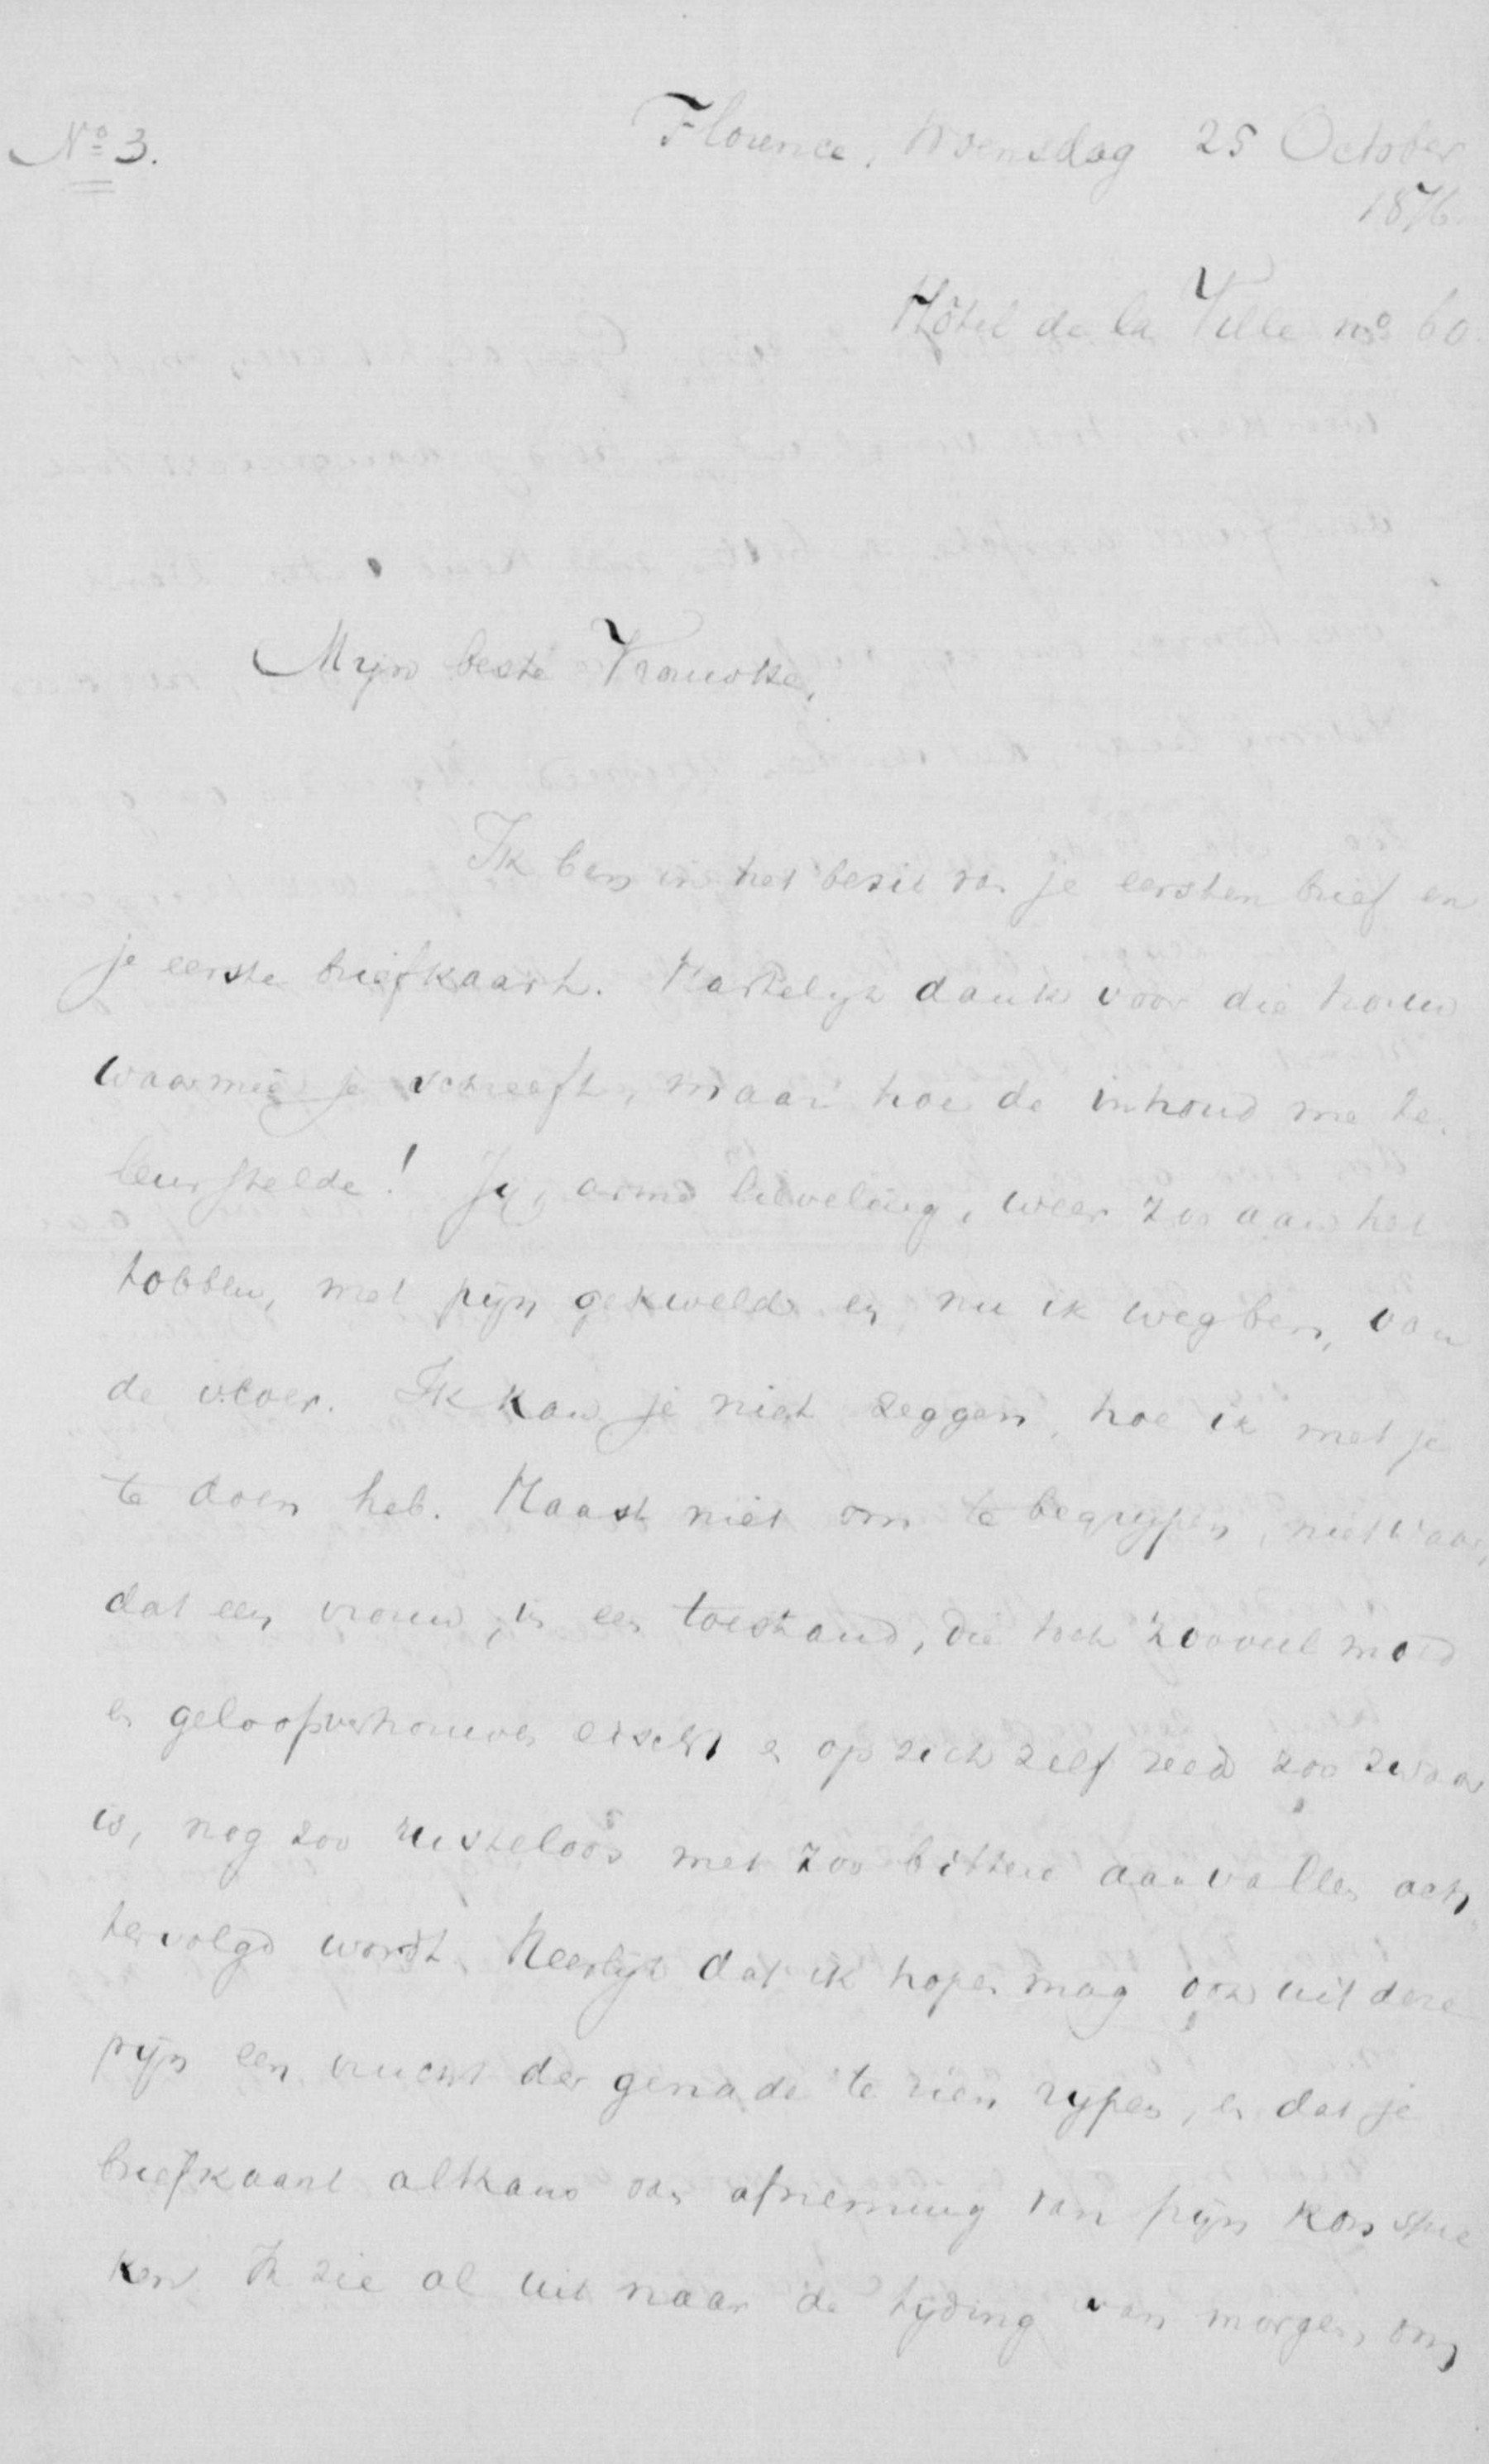 Nº 3.
Florence, Woensdag 25 October
1876.
Hôtel de la Ville nº 60.
Mijn beste Vrouwke,
Ik ben in het bezit van je eersten brief en
je eerste briefkaart. Hartelijk dank voor die trouw
waarmeê je schreeft, maar hoe de inhoud me te-
leurstelde! Jij, arme lieveling, weer zoo aan het
tobben, met pijn gekweld en, nu ik weg ben, van
de vloer. Ik kan je niet zeggen, hoe ik met je
te doen heb. Haast niet om te begrijpen, niet waar,
dat een vrouw, in een toestand, die toch zooveel moed
en geloofsvertrouwen eischt en op zich zelf reeds zoo zwaar
is, nog zoo rusteloos met zoo bittere aanvallen ach-
tervolgd wordt. Heerlijk dat ik hopen mag ook uit deze
pijn een vrucht der genade te zien rijpen, en dat je
briefkaart althans van afneming van pijn kon spre
ken. Ik zie al uit naar de tijding van morgen, om